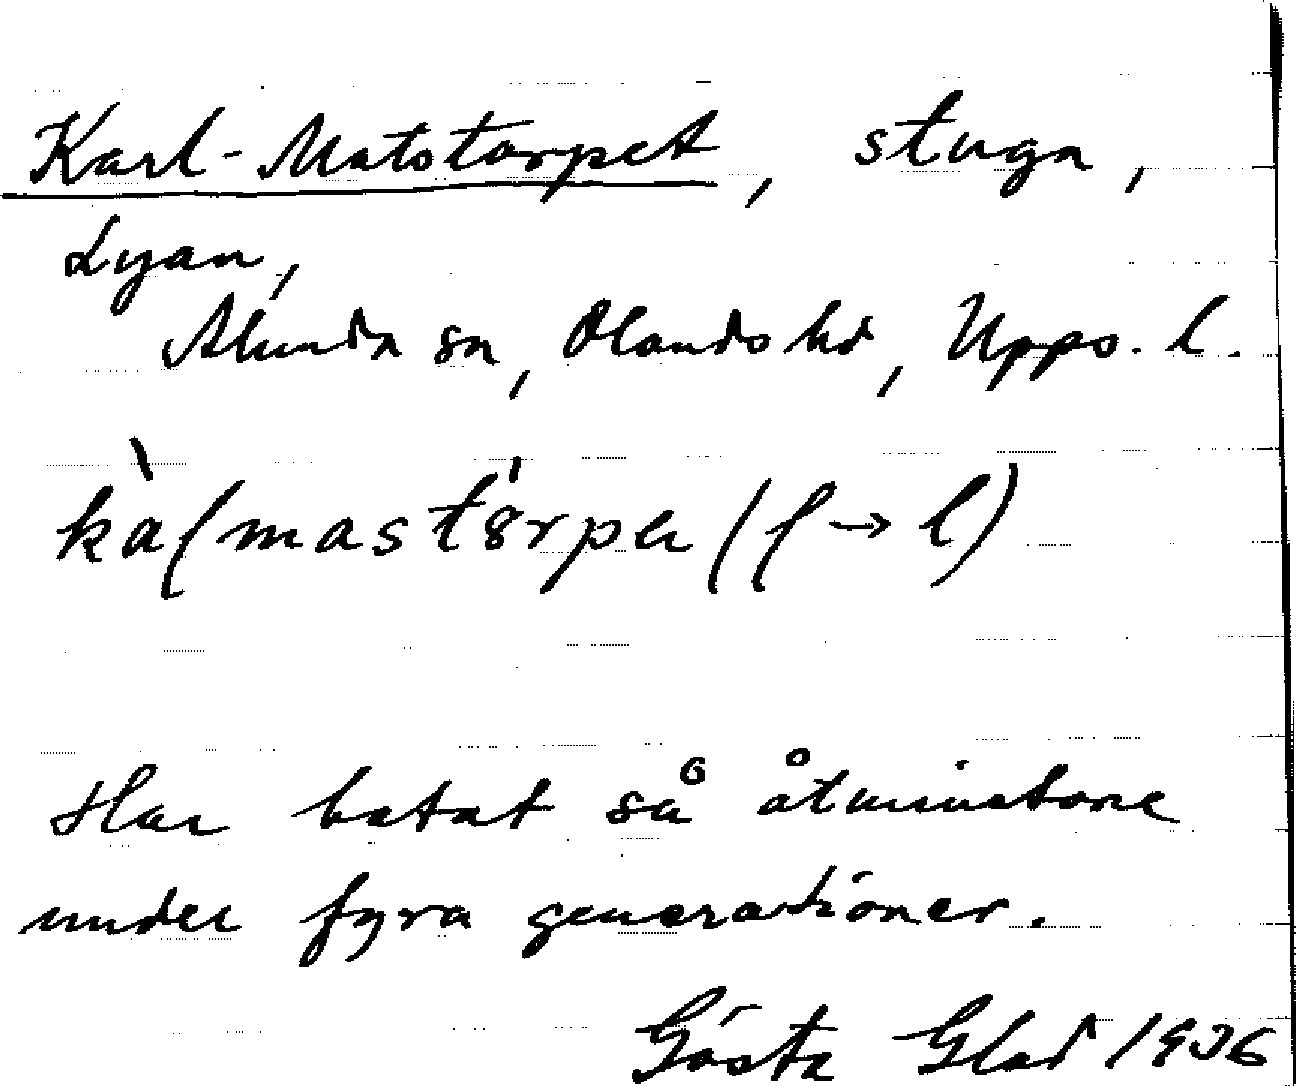 Karl-Matstorpet, stuga,
Lyan,
Alunda sn, Olands hd, Upps. l.
kàɭmastórpeɳ (ɭ → l)
Har hetat så åtminstone
under fyra generationer.
Gösta Glad 1936